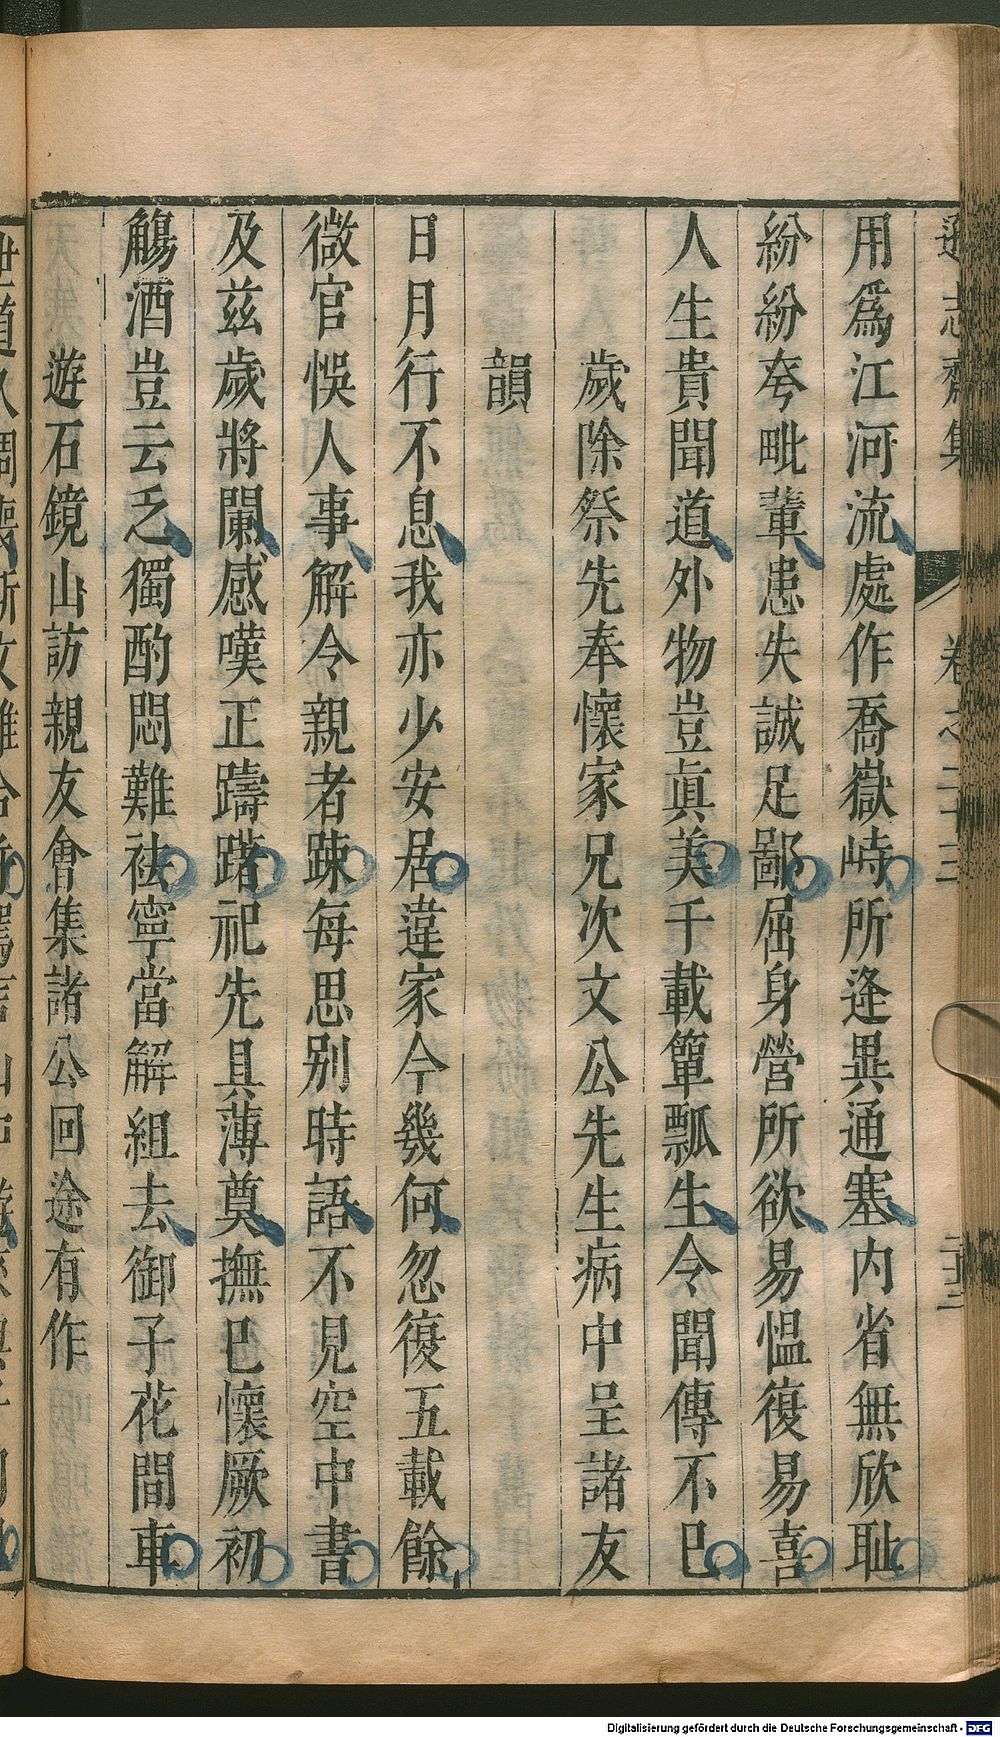 遜志齋集 卷之二十三
用爲江河流處作喬嶽峙所逢異通塞内省無欣耻
紛紛夸毗輩患失誠足鄙屈身營所欲易愠復易喜
人生貴聞道外物豈眞美千載簞瓢生令聞傳不已
歲除祭先奉懷家兄次文公先生病中呈諸友
韻
日月行不息我亦少安居違家今幾何忽復五載餘
微官悞人事解令親者踈每思别時語不見空中書
及兹歲將闌感嘆正躊躇祀先具薄奠撫已懷厥初
觴酒豈云乏獨酌悶難袪寧當解組去御子花間車
遊石鏡山訪親友會集諸公回途有作
Digitalisierung gefördert durch die Deutsche Forschungsgemeinschaft - DFG